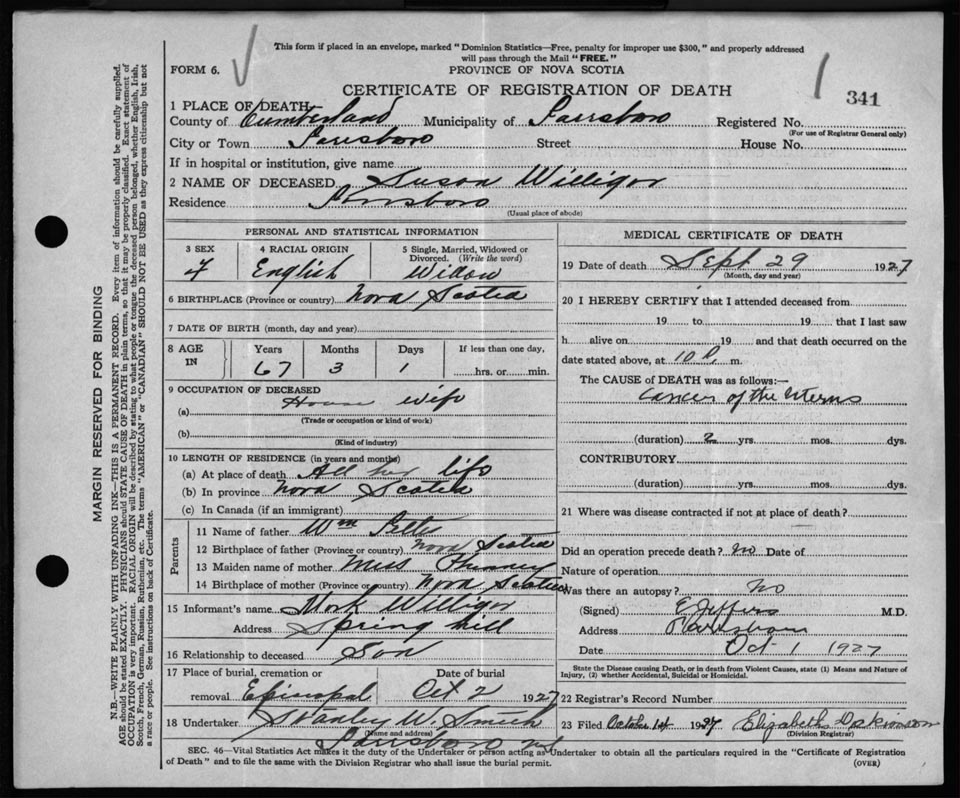 This form if placed in an envelope, marked "Dominion Statistics—Free, penalty for improper use $300," and properly addressed
will pass through the Mail "FREE."
FORM 6.
PROVINCE OF NOVA SCOTIA
CERTIFICATE OF REGISTRATION OF DEATH
341
1 PLACE OF DEATH
County of Cumberland Municipality of Parrsboro Registered No.
(For use of Registrar General only)
City or Town Parrsboro Street House No.
If in hospital or institution, give name
2 NAME OF DECEASED Susan Willigar
Residence Parrsboro
(Usual place of abode)
PERSONAL AND STATISTICAL INFORMATION
3 SEX 4 RACIAL ORIGIN 5 Single, Married, Widowed or
Divorced. (Write the word)
F English Widow
6 BIRTHPLACE (Province or country) Nova Scotia
7 DATE OF BIRTH (month, day and year)
8 AGE IN Years Months Days If less than one day,
67 3 1 hrs. or min.
9 OCCUPATION OF DECEASED
(a) House wife
(Trade or occupation or kind of work)
(b)
(Kind of industry)
10 LENGTH OF RESIDENCE (in years and months)
(a) At place of death All her life
(b) In province Nova Scotia
(c) In Canada (if an immigrant)
Parents
11 Name of father Wm
12 Birthplace of father (Province or country) Nova Scotia
13 Maiden name of mother Miss
14 Birthplace of mother (Province or country) Nova Scotia
15 Informant's name Mark Willigar
Address Spring hill
16 Relationship to deceased Son
17 Place of burial, cremation or Date of burial
removal Episcopal Oct 2 1927
18 Undertaker Stanley W. Smith
(Name and address)
Parrsboro NS
MEDICAL CERTIFICATE OF DEATH
19 Date of death Sept 29 1927
(Month, day and year)
20 I HEREBY CERTIFY that I attended deceased from
19 to 19 that I last saw
h alive on 19 and that death occurred on the
date stated above, at 10 P. m.
The CAUSE OF DEATH was as follows:—
Cancer of the Uterus
(duration) 2 yrs. mos. dys.
CONTRIBUTORY
(duration) yrs. mos. dys.
21 Where was disease contracted if not at place of death?
Did an operation precede death? no Date of
Nature of operation
Was there an autopsy? No
(Signed) E Jeffers M.D.
Address Parrsboro
Date Oct 1 1927
State the Disease causing Death, or in death from Violent Causes, state (1) Means and Nature of
Injury, (2) whether Accidental, Suicidal or Homicidal.
22 Registrar's Record Number
23 Filed October 1st 1927 Elizabeth
(Division Registrar)
SEC. 46—Vital Statistics Act makes it the duty of the Undertaker or person acting as Undertaker to obtain all the particulars required in the "Certificate of Registration
of Death" and to file the same with the Division Registrar who shall issue the burial permit.
(OVER)
MARGIN RESERVED FOR BINDING
N.B.—WRITE PLAINLY WITH UNFADING INK—THIS IS A PERMANENT RECORD. Every item of information should be carefully supplied.
AGE should be stated EXACTLY. PHYSICIANS should STATE CAUSE OF DEATH in plain terms, so that it may be properly classified. Exact statement of
OCCUPATION is very important. RACIAL ORIGIN will be described by stating to what people or tongue the deceased person belonged, whether English, Irish,
Scotch, French, German, Russian, Ruthenian, etc. The terms "AMERICAN" or "CANADIAN" SHOULD NOT BE USED as they express citizenship but not
a race or people. See instructions on back of Certificate.